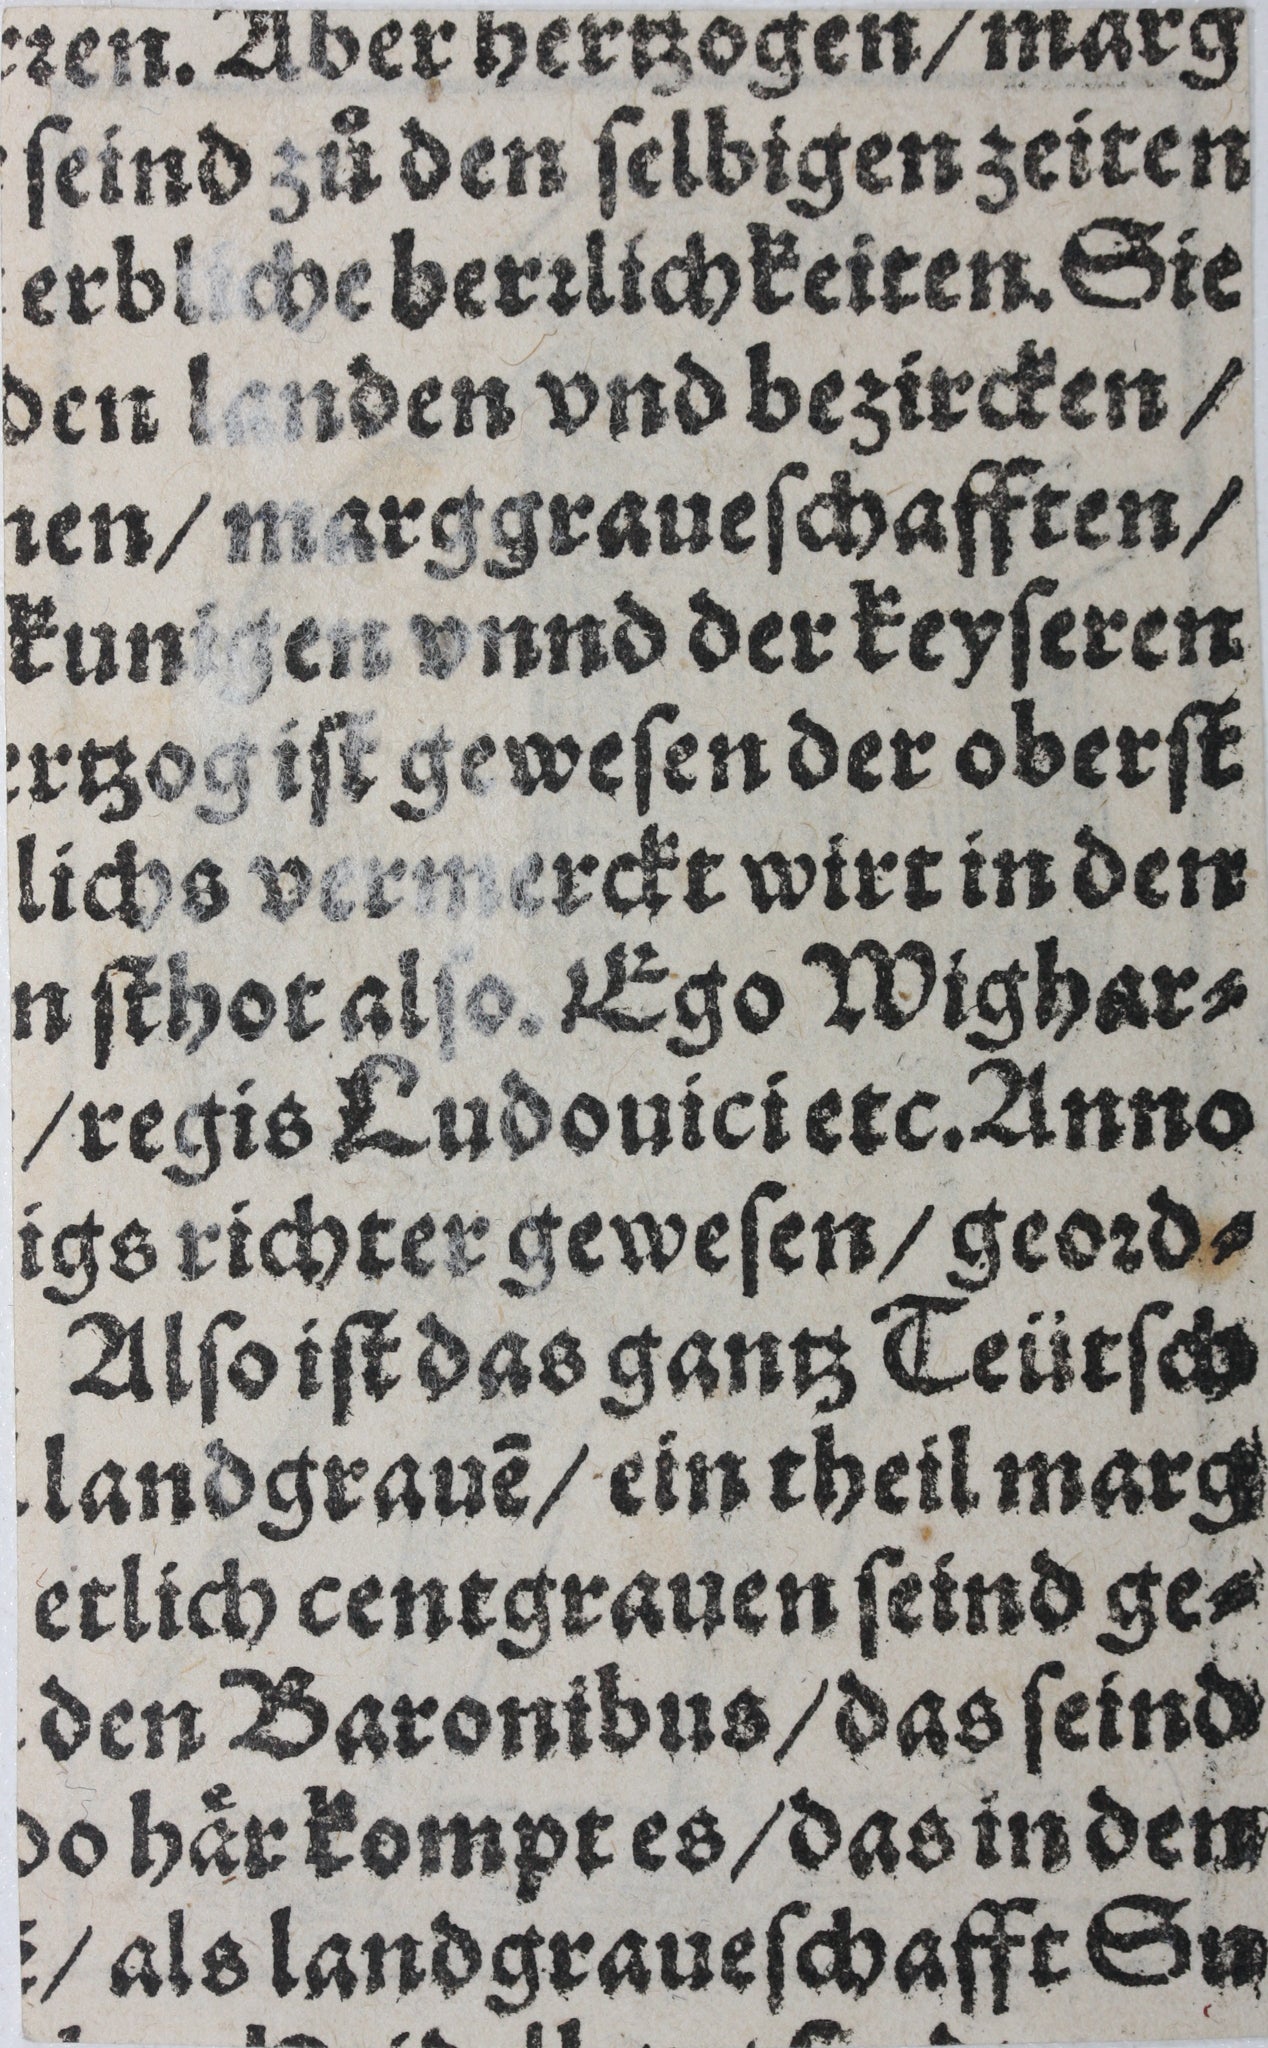 rren. Aber hertzogen/ marg
seind zů den selbigen zeiten
erbliche herrlichkeiten. Sie
den landen vnd bezircken/
nen/ marggraueschafften/
kunigen vnnd der keyseren
ertzog ist gewesen der oberst
lichs vermerckt wirt in den
n sthot also. Ego Wighar⸗
/ regis Ludouici etc. Anno
igs richter gewesen/ geord⸗
Also ist das gantz Teütsch
landgrauē/ ein theil marg
etlich centgrauen seind ge⸗
den Baronibus/ das seind
do haͤr kompt es/ das in den
/ als landgraueschafft Su